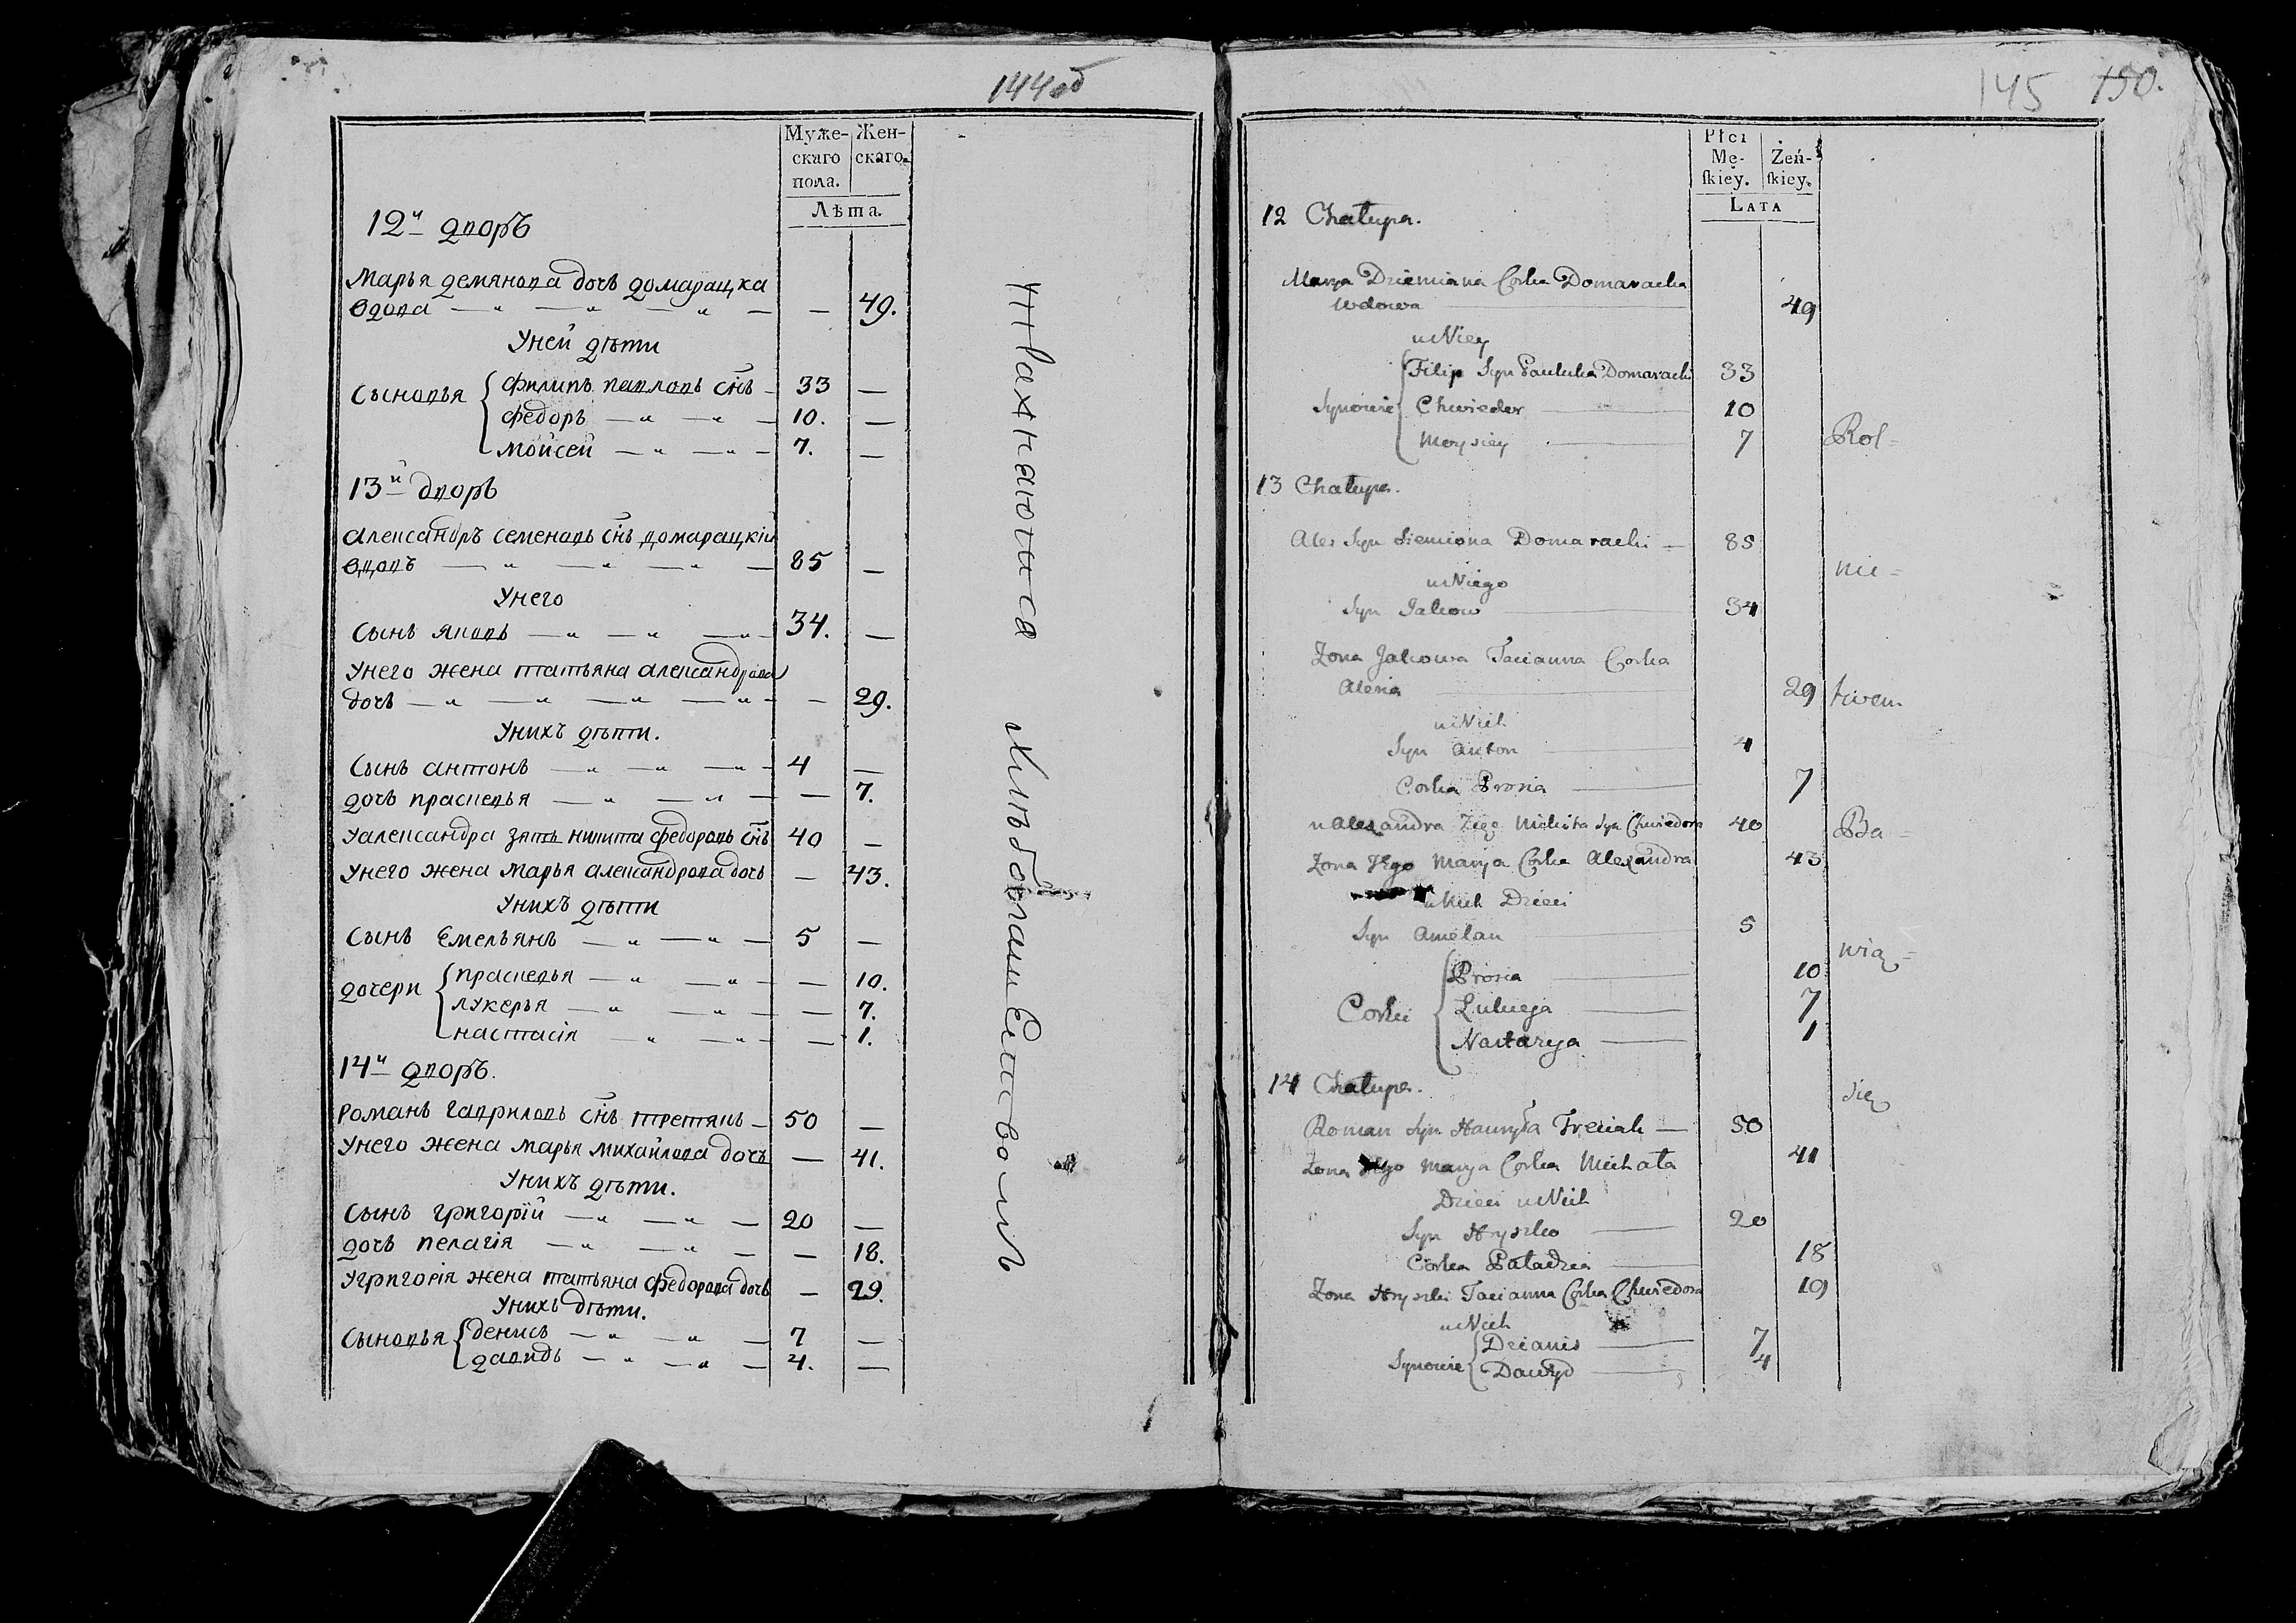 144об
Муже-
скаго
пола.
Жен-
скаго.
Лѣта.
12й дворъ
Марья демянова дочь домарацка
вдова — — — — — 49.
Уней дѣти
Сыновья { филипъ павловъ снъ - 33 —
федоръ — — — 10. —
мойсей — — — 7. —
13й дворъ
александръ семеновъ снъ домарацкій
вдовъ — — — — 85 —
Унего
Сынъ яковъ — — — 34. —
Унего жена татьяна александрова
дочь — — — — — 29.
Унихъ дѣти.
Сынъ антонъ — — — 4 —
дочь прасковья — — — — 7.
Уалександра зять никита федоровъ снъ 40 —
Унего жена марья александрова дочь — 43.
Унихъ дѣти
Сынъ Емельянъ — — — 5 —
дочери { прасковья — — — — 10.
лукерья — — — — 7.
настасія — — — 1.
14й дворъ.
Романъ гавриловъ снъ третякъ — 50 —
Унего жена марья михайлова дочь — 41.
Унихъ дѣти.
Сынъ григорій — — — 20 —
дочь пелагія — — — — 18.
Угригорія жена татьяна федорова дочь — 29.
Унихъ дѣти.
Сыновья { денисъ — — — 7 —
давидъ — — — 4. —
хлѣбопашествомъ
145 150.
Płci
Mę-
ſkiey.
Żeń-
ſkiey.
LATA
12 Chałupa.
Marya Dziemiana Corka Domaracka
Wdowa 49
u Niey
Synowie { Filip Syn Pauluka Domaracki 33
Chwiedor 10
Moysiey 7
Rol=
13 Chałupa.
Alex Syn Siemiona Domaracki — 85
nic=
u Niego
Syn Jakow 34
Zona Jakowa Tacianna Corka
Alexia 29
twem
u Nich
Syn Anton 4
Corka Prosia 7
u Alexandra Zięć Mikita Syn Chwiedora 40
Ba=
Zona Jego Marya Corka Alexandra 43
u Nich Dzieci
Syn Amelan 5
wią=
Corki { Prosia 10
Łukieja 7
Nastazya 1
14 Chałupa.
się
Roman Syn Hauryła Treciak — 50
Zona Jego Marya Corka Michała 41
Dzieci u Nich
Syn Hryszko 20
Corka Paładzia 18
Zona Hryszki Tacianna Corka Chwiedora 19
u Nich
Synowie { Dzianis 7
Dawyd 4